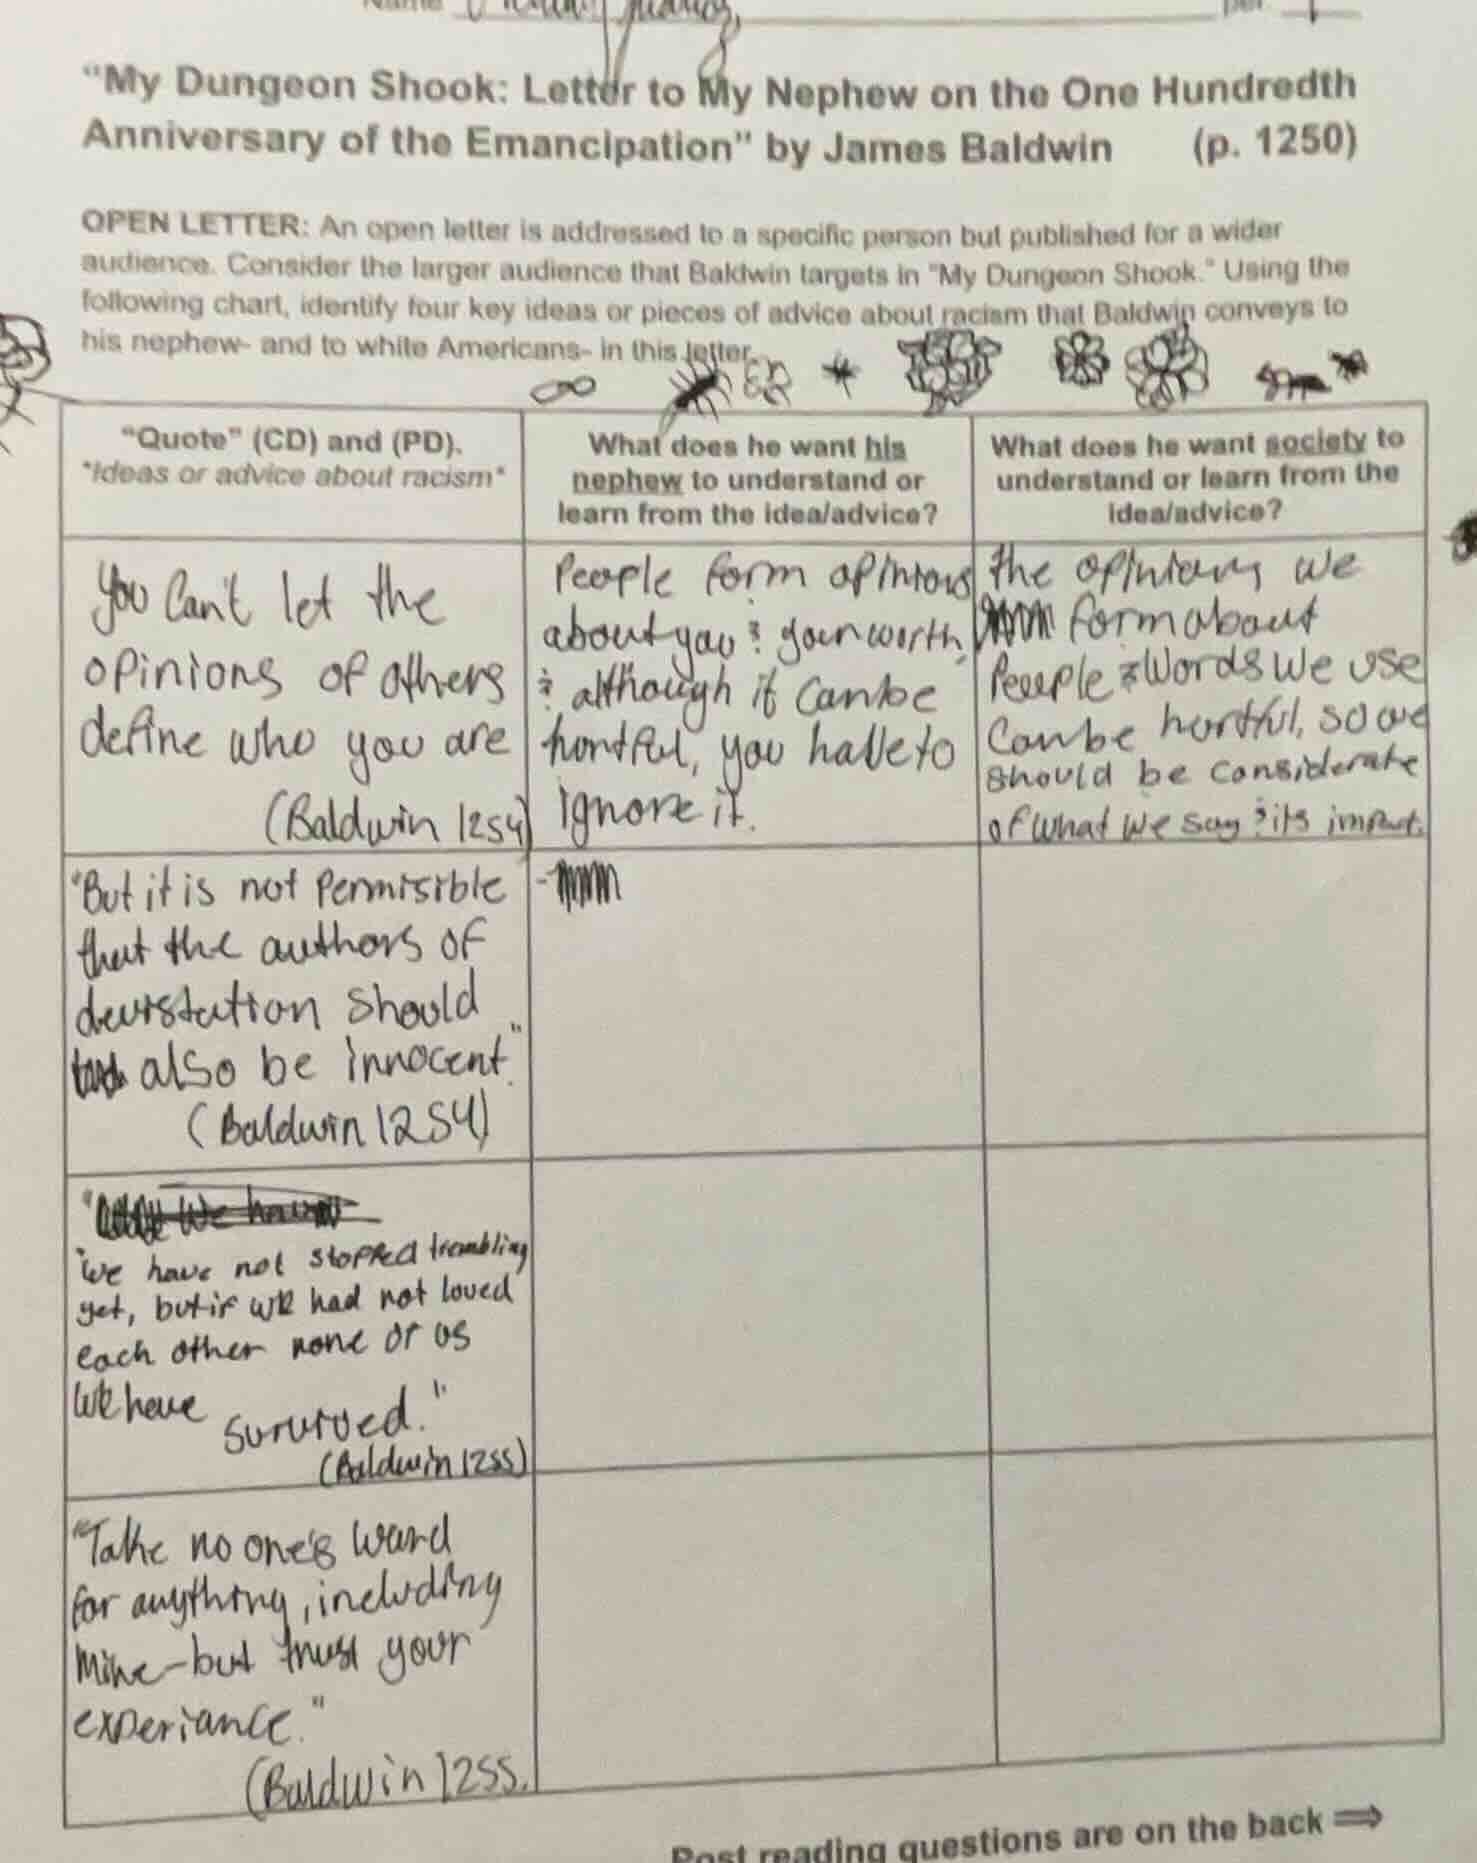 Name
per
"My Dungeon Shook: Letter to My Nephew on the One Hundredth
Anniversary of the Emancipation" by James Baldwin (p. 1250)
OPEN LETTER: An open letter is addressed to a specific person but published for a wider
audience. Consider the larger audience that Baldwin targets in "My Dungeon Shook." Using the
following chart, identify four key ideas or pieces of advice about racism that Baldwin conveys to
his nephew- and to white Americans- in this letter.
"Quote" (CD) and (PD).
*Ideas or advice about racism*
What does he want his
nephew to understand or
learn from the idea/advice?
What does he want society to
understand or learn from the
idea/advice?
You Can't let the
opinions of others
define who you are
(Baldwin 1254)
People form opinions
about you & your worth,
& although it can be
hurtful, you have to
ignore it.
the opinions we
form about
People & Words We use
can be hurtful, so we
should be considerate
of what we say & its impact.
"But it is not permisible
that the authors of
devastation should
also be innocent."
(Baldwin 1254)
"We have not stopped trembling
yet, but if we had not loved
each other none of us
we have
survived."
(Baldwin 1255)
"Take no one's word
for anything, including
mine-but trust your
experiance."
(Baldwin 1255.
Post reading questions are on the back ⇒